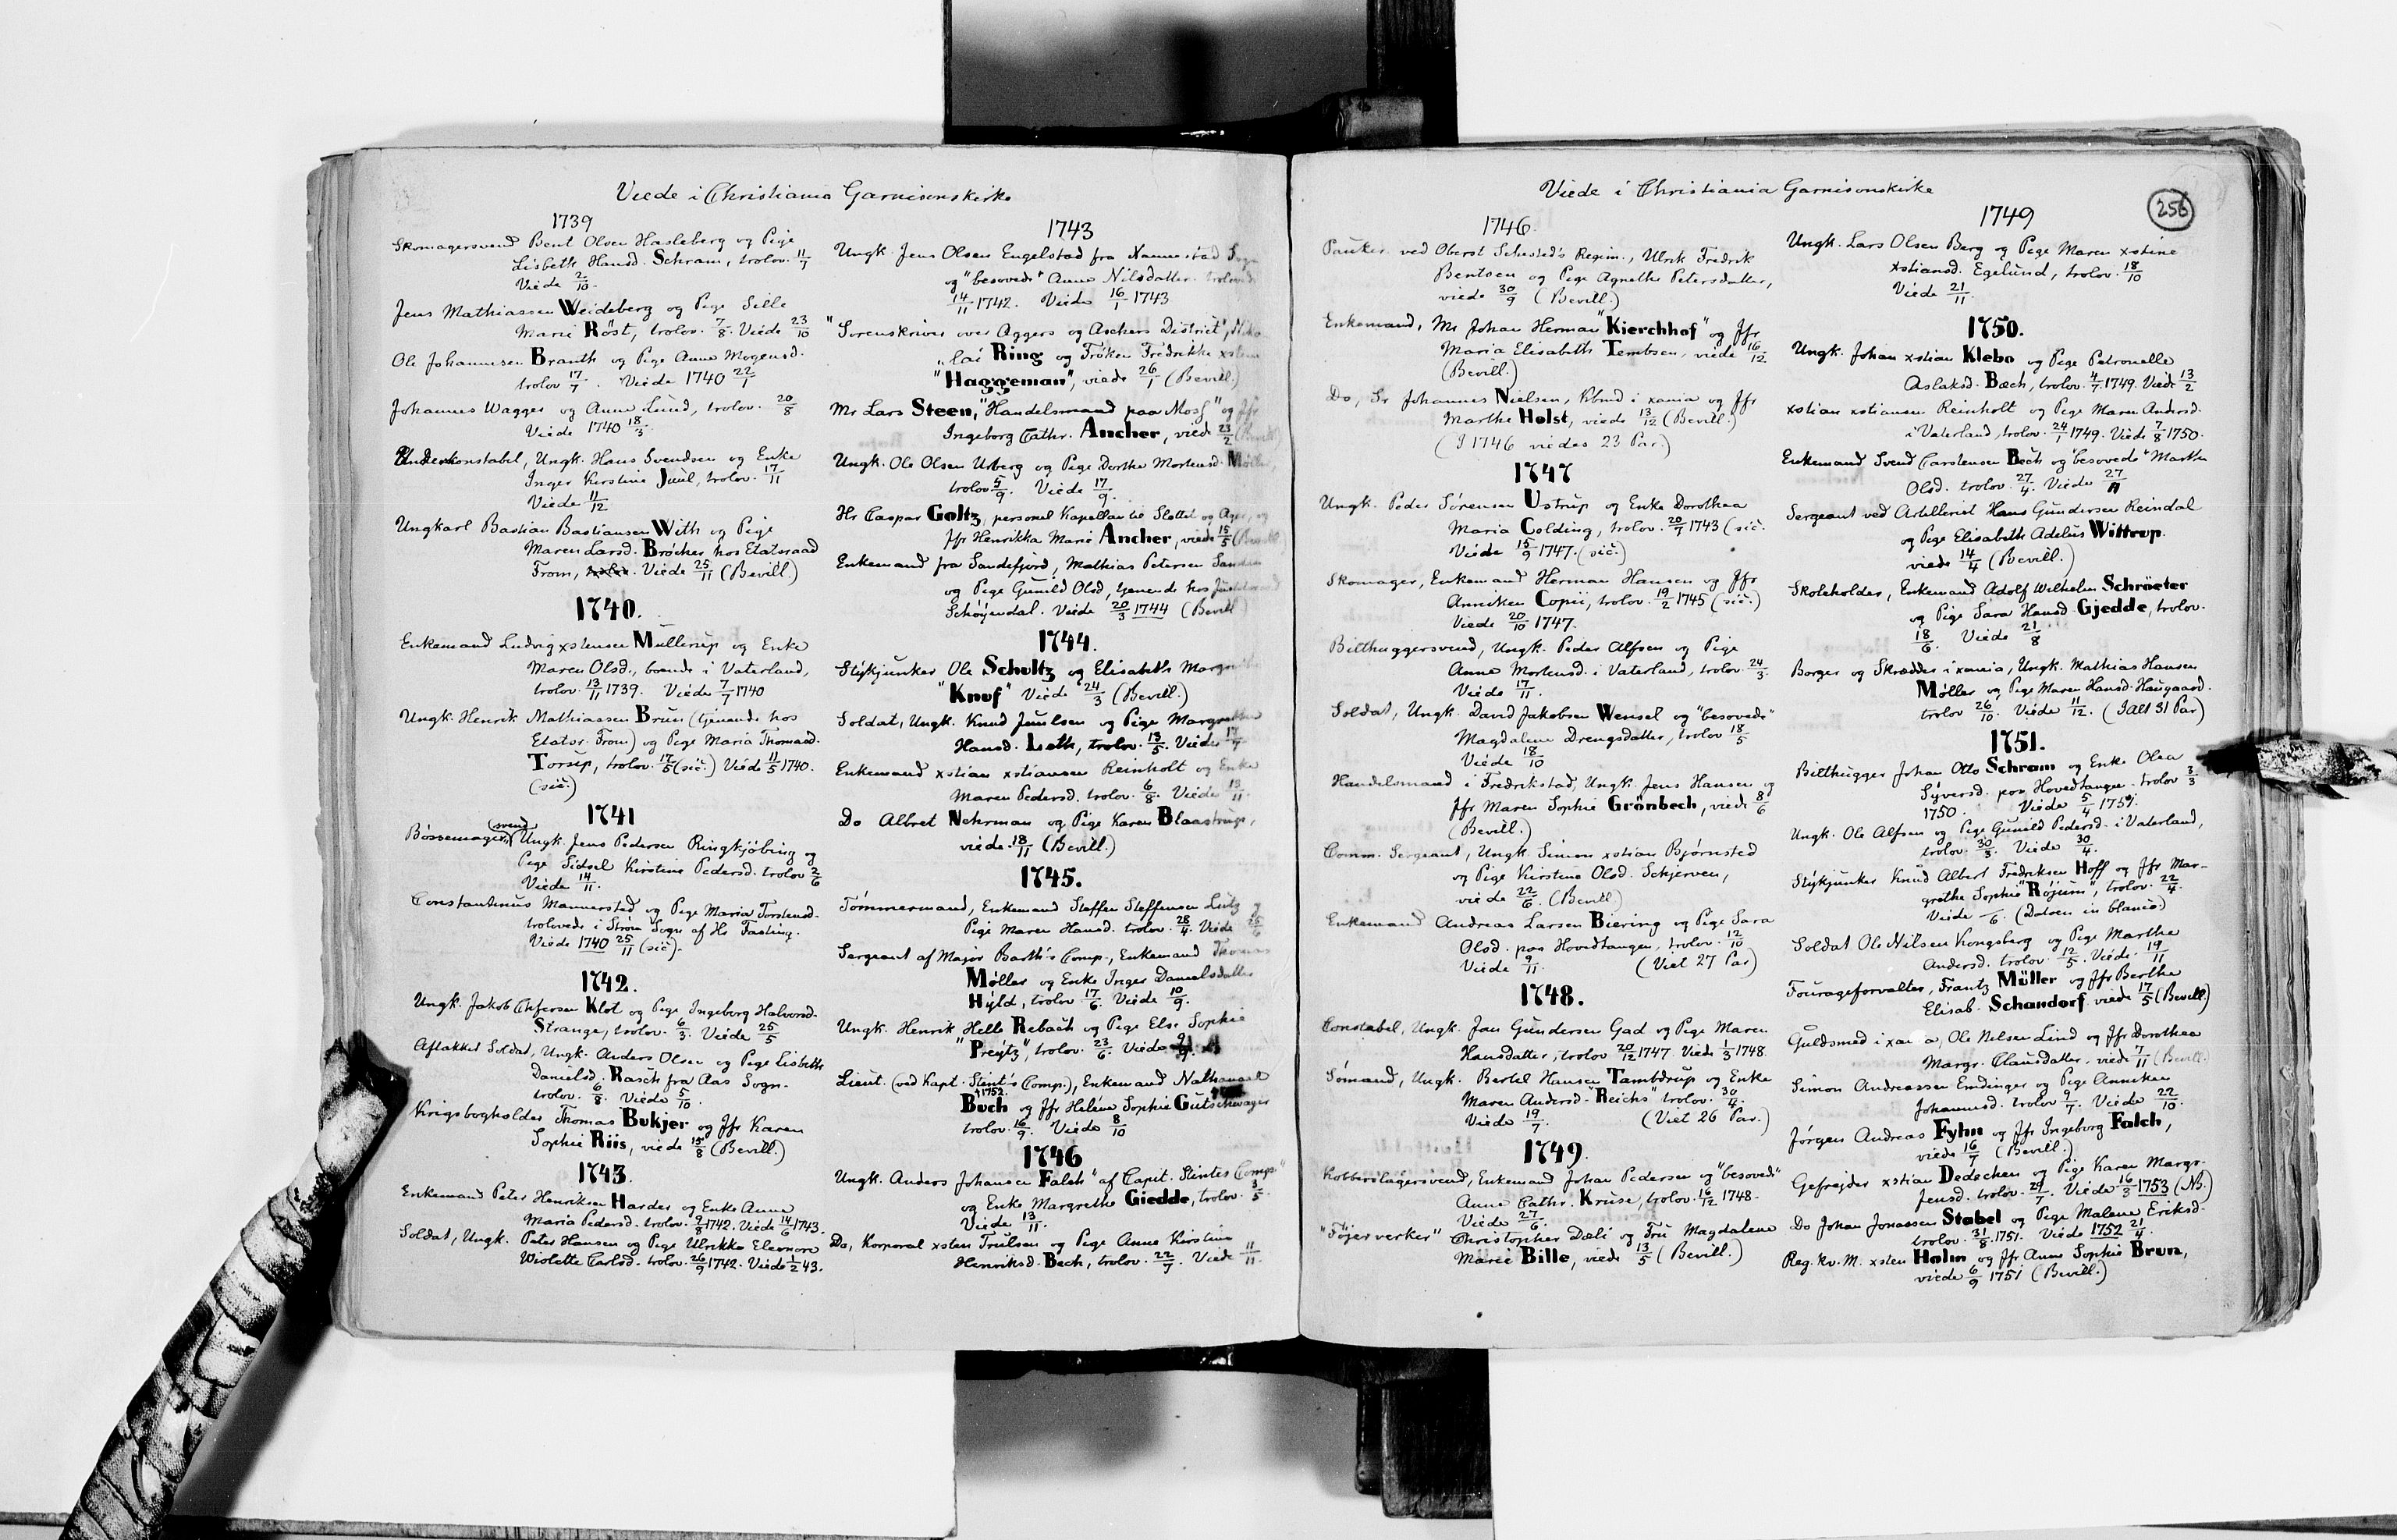 Viede i Christiania Garnisonskirke
1739
Skomagersvend Bent Olsen Hasleberg og Pige
Lisbeth Hansd. Schram, trolov. 11/7
Viede 2/10.
Jens Mathiassen Weideberg og Pige Sille
Marie Röst, trolov. 7/8. Viede 23/10
Ole Johannesen Branth og Pige Anne Mogensd.
trolov 17/7. Viede 1740 22/1
Johannes Wagger og Anne Lund, trolov. 20/8
Viede 1740 18/3.
Underkonstabel, Ungk. Hans Svendsen og Enke
Inger Kirstine Juul, trolov. 17/11
Viede 11/12
Ungkarl Bastian Bastiansen With og Pige
Maren Larsd. Bröcker hos Etatsraad
From, Viede 25/11 (Bevill.)
1740.
Enkemand Ludvig xstensen Mullerup og Enke
Maren Olsd., boende i Vaterland,
trolov. 13/11 1739. Viede 7/7 1740
Ungk. Henrik Mathiassen Brun (tjenende hos
Etatsr. From) og Pige Maria Thomasd.
Torup, trolov. 17/5 (sic.) Viede 11/5 1740.
(sic.)
1741
Bössemager(svend), Ungk. Jens Pedersen Ringkjöbing og
Pige Sidsel Kirstine Pedersd. trolov 2/6
Viede 14/11.
Constantinus Mannerstad og Pige Maria Torstensd.
trolovede i Ström Sogn af Hr Fasting.
Viede 1740 25/11 (sic).
1742.
Ungk. Jakob Klot og Pige Ingeborg Halvorsd.
Strange, trolov. 6/3. Viede 25/5
Aftakket Soldat, Ungk. Anders Olsen og Pige Lisbeth
Danielsd. Rasch fra Aas Sogn.
trolov. 6/8. Viede 5/10.
Krigsbogholder Thomas Bukjer og Jfr Karen
Sophie Riis, viede 15/8 (Bevill.)
1743.
Enkemand Peter Henriksen Harder og Enke Anne
Maria Pedersd. trolov. 9/8 1742. Viede 14/6 1743.
Soldat, Ungk. Peter Hansen og Pige Ulrikke Eleonore
Wiolette Carlsd. trolov. 26/9 1742. Viede 1/2 43.
1743
Ungk. Jens Olsen Engelstad fra Nannestad Sogn
og "besovede" Anne Nilsdatter. trolovede
14/11 1742. Viede 16/1 1743
"Sorenskriver over Aggers og Aschers District", Niko-
lai Ring og Fröken Fredrikke xstine
"Haggeman", viede 26/1 (Bevill.)
Mr Lars Steen, "Handelsmand paa Moss" og Jfr
Ingeborg Cathr. Ancher, viede 23/2 (Bevill)
Ungk. Ole Olsen Urberg og Pige Dorthe Mortensd. Möller,
trolov 5/9. Viede 17/9.
Hr Caspar Goltz, personel Kapellan til Slottet og Ager, og
Jfr Henrikka Marie Ancher, viede 15/5 (Bevill)
Enkemand fra Sandefjord, Mathias Petersen Sandsen
og Pige Gunild Olsd, tjenende hos
Schöyendal. Viede 20/3 1744 (Bevill)
1744.
Stykjunker Ole Schultz og Elisabeth Margrethe
"Knuf" Viede 24/3 (Bevill.)
Soldat, Ungk. Knud Juulsen og Pige Margrethe
Hansd. Leth, trolov. 13/5. Viede 17/7
Enkemand xstian xstiansen Reinholt og Enke
Maren Pedersd. trolov. 6/8. Viede 13/11.
Do Albret Nehrman og Pige Karen Blaastrup,
viede 18/11 (Bevill.)
1745.
Tömmermand, Enkemand Steffen Steffensen Lutz og
Pige Maren Hansd. trolov. 28/4. Viede 25/6
Sergeant af Major Barth's Comp., Enkemand Thomas
Möller og Enke Inger Danielsdatter
Hyld, trolov 17/6. Viede 10/9.
Ungk. Henrik Helle Rebach og Pige Else Sophie
"Preytz", trolov. 23/6. Viede
Lieut. (ved Kapt. Stint's Comp.), Enkemand Nathanael
† 1752.
Buch og Jfr Helene Sophie Gutschwager
trolov. 16/9. Viede 8/10
1746
Ungk. Anders Johansen Falch "af Capit. Stintes Comp."
og Enke Margrethe Giedde, trolov. 3/5.
Viede 13/11.
Do, Korporal xsten Trulsen og Pige Anne Kirstine
Henriksd. Bech, trolov. 22/7. Viede 11/11.
Viede i Christiania Garnisonskirke
256
1746.
Pauker ved Oberst Schested's Regim., Ulrik Fredrik
Bentsen og Pige Agnethe Petersdatter,
viede 30/9 (Bevill.)
Enkemand, Mr Johan Herman "Kierchhof" og Jfr
Maria Elisabeth Tembsen, viede 16/12
(Bevill.)
Do, Sr Johannes Nielsen, Kbmd i xania og Jfr
Marthe Holst, viede 13/12 (Bevill.)
(I 1746 viedes 23 Par.)
1747
Ungk. Peder Sörensen Ustrup og Enke Dorothea
Maria Colding, trolov. 20/7 1743 (sic.
Viede 15/9 1747. (sic.)
Skomager, Enkemand Herman Hansen og Jfr
Anniken Copii, trolov. 19/2 1745 (sic.)
Viede 20/10 1747.
Billhuggersvend, Ungk. Peder Alfsen og Pige
Anne Mortensd. i Vaterland, trolov. 24/3.
Viede 17/11.
Soldat, Ungk. David Jakobsen Wensel og "besovede"
Magdalene Drengsdatter, trolov 18/5
Viede 18/10
Handelsmand i Fredrikstad, Ungk. Jens Hansen og
Jfr Maren Sophie Grönbech, viede 8/6
(Bevill.)
Comm. Sergeant, Ungk. Simon xstian Björnsted
og Pige Kirstine Olsd. Schjerven,
viede 22/6. (Bevill)
Enkemand Andreas Larsen Biering og Pige Sara
Olsd. paa Hovedtangen, trolov. 12/10
Viede 9/11. (Viet 27 Par)
1748.
Constabel, Ungk. Jan Gundersen Gad og Pige Maren
Hansdatter, trolov 20/12 1747. Viede 1/5 1748.
Sömand, Ungk. Bertel Hansen Tambdrup og Enke
Maren Andersd. "Reichs" trolov. 30/4.
Viede 19/7. (Viet 26 Par.)
1749.
Kobberslagersvend, Enkemand Johan Pedersen og "besovede"
Anne Cathr. Kruse, trolov. 16/12 1748.
Viede 27/6.
"Föjerverker" Christopher Dæli og Fru Magdalene
Marie Bille, viede 13/5 (Bevill.)
1749
Ungk. Lars Olsen Berg og Pige Maren xstine
xstiansd. Egelund, trolov. 18/10
Viede 21/11.
1750.
Ungk. Johan xstian Klebo og Pige Petronelle
Aslaksd. Bæch, trolov. 4/7 1749. Viede 13/2
xstian xstiansen Reinholt og Pige Maren Andersd.
i Vaterland, trolov. 24/1 1749. Viede 7/8 1750.
Enkemand Svend Carstensen Bech og "besovede" Marthe
Olsd. trolov. 27/4. Viede 27/11
Sergeant ved Artilleriet Hans Gundersen Reindal
og Pige Elisabeth Adelus Wittrup.
viede 14/4 (Bevill.)
Skoleholder, Enkemand Adolf Wilhelm Schröeter
og Pige Sara Hansd. Gjedde, trolov.
18/6. Viede 21/8
Borger og Skrædder i xania, Ungk. Mathias Hansen
Möller og Pige Maren Hansd. Haugaard.
trolov 26/10. Viede 11/12. (Ialt 31 Par)
1751.
Billhugger Johan Otto Schram og Enke Olea
Syversd. paa Hovedtangen. trolov 3/3
1750. Viede 5/4 1751.
Ungk. Ole Alfsen og Pige Gunild Pedersd. i Vaterland,
trolov. 30/3. Viede 30/4.
Stykjunker Knud Albert Fredriksen Hoff og Jfr Mar-
grethe Sophie "Röjum", trolov. 22/4.
Viede –/6. (Datoen in blanco)
Soldat Ole Nilsen Kongsberg og Pige Marthe
Andersd. trolov. 12/5. Viede. 19/11
Fourageforvalter, Frantz Müller og Jfr Berthe
Elisab. Schandorf viede 17/5 (Bevill.)
Guldsmed i xania, Ole Nelsen Lind og Jfr Dorothea
Margr. Clausdatter, viede 7/11 (Bevill.)
Simon Andreassen Emdinger og Pige Anniken
Johannesd. trolov 9/7. Viede 22/10.
Jörgen Andreas Fyhn og Jfr Ingeborg Falch,
viede 16/7 (Bevill.)
Gefrejder xstian Dedechen og Pige Karen Margr.
Jensd. trolov. 29/7. Viede 16/3 1753 (NB.)
Do Johan Jonassen Stabel og Pige Malene Eriksd.
trolov. 31/8. 1751. Viede 1752 21/4.
Reg. kv. M. xsten Holm og Jfr Anne Sophie Brun,
viede 6/9 1751 (Bevill.)